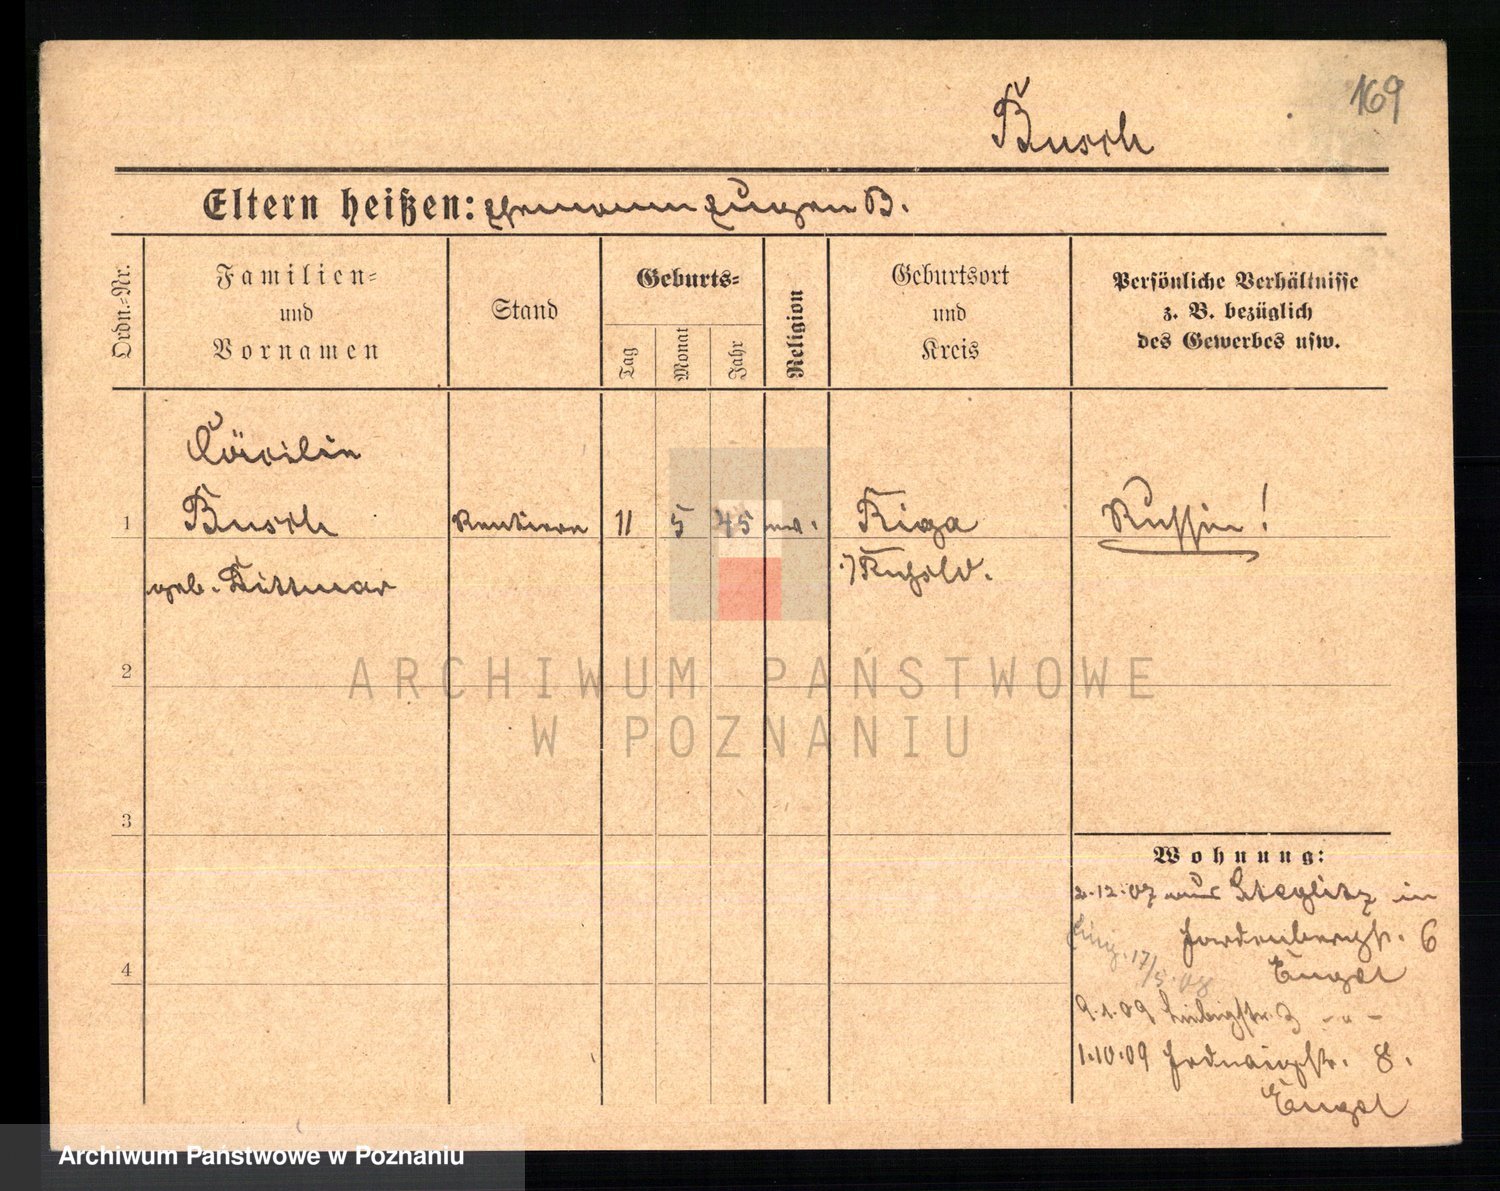 169
Busch
Eltern heißen: Ehemann Eugen B.
Ordn.=Nr.
Familien=
und
Vornamen
Stand
Geburts=
Tag
Monat
Jahr
Religion
Geburtsort
und
Kreis
Persönliche Verhältnisse
z. B. bezüglich
des Gewerbes usw.
Cäcilie
1 Busch Rentiere 11 5 45 ev. Riga Russin!
geb. Dittmar
2
3
4
ARCHIWUM PAŃSTWOWE
W POZNANIU
Wohnung:
2.12.07 aus Steglitz in
6
17/5.08 Engel
9.1.09 Liebigstr. 3 - " -
1.10.09 8.
Engel
Archiwum Państwowe w Poznaniu